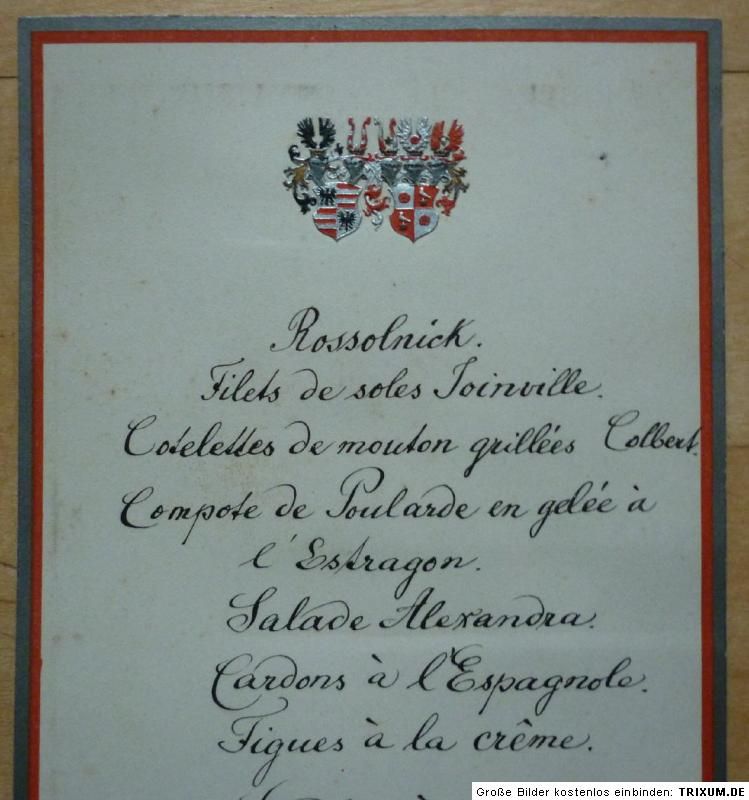 Rossolnick.
Filets de soles Joinville.
Cotelettes de mouton grillées Colbert.
Compote de Poularde en gelée à
l'Estragon.
Salade Alexandra.
Cardons à l'Espagnole.
Figues à la crême.
Große Bilder kostenlos einbinden: TRIXUM.DE